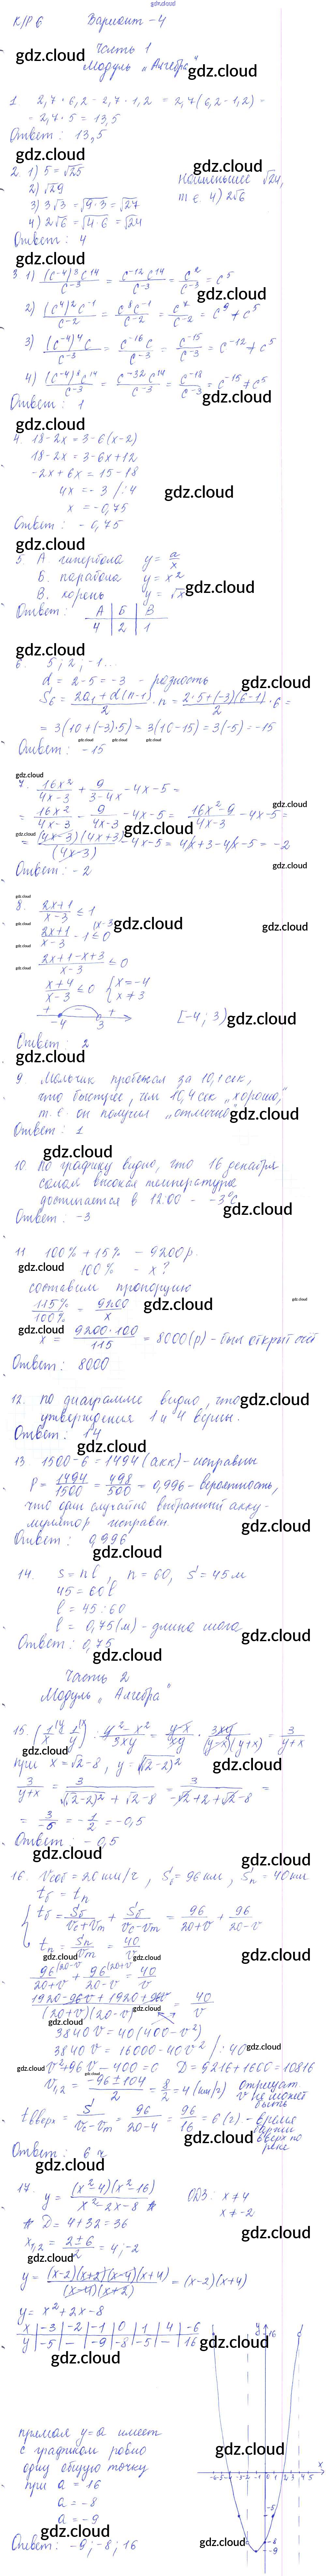 К/Р 6 Вариант - 4
Часть 1
Модуль „Алгебра"
1. 2,7 · 6,2 - 2,7 · 1,2 = 2,7 (6,2 - 1,2) =
= 2,7 · 5 = 13,5
Ответ: 13,5
2. 1) 5 = √25
2) √29
3) 3√3 = √(9·3) = √27
4) 2√6 = √(4·6) = √24
Наименьшее √24,
т.е. 4) 2√6
Ответ: 4
3 1) (c⁻⁴)³c¹⁴/c⁻³ = c⁻¹²c¹⁴/c⁻³ = c²/c⁻³ = c⁵
2) (c⁴)²c⁻¹/c⁻² = c⁸c⁻¹/c⁻² = c⁷/c⁻² = c⁹ ≠ c⁵
3) (c⁻⁴)⁴c/c⁻³ = c⁻¹⁶c/c⁻³ = c⁻¹⁵/c⁻³ = c⁻¹² ≠ c⁵
4) (c⁻⁴)⁸c¹⁴/c⁻³ = c⁻³²c¹⁴/c⁻³ = c⁻¹⁸/c⁻³ = c⁻¹⁵ ≠ c⁵
Ответ: 1
4. 18 - 2x = 3 - 6(x - 2)
18 - 2x = 3 - 6x + 12
-2x + 6x = 15 - 18
4x = -3 /:4
x = -0,75
Ответ: -0,75
5. А. гипербола y = a/x
Б. парабола y = x²
В. корень y = √x
Ответ: А Б В
4 2 1
6. 5; 2; -1...
d = 2 - 5 = -3 - разность
S₆ = (2a₁ + d(n-1))/2 · n = (2·5 + (-3)(6-1))/2 · 6 =
= 3(10 + (-3)·5) = 3(10 - 15) = 3(-5) = -15
Ответ: -15
7. 16x²/(4x-3) + 9/(3-4x) - 4x - 5 =
= 16x²/(4x-3) - 9/(4x-3) - 4x - 5 = (16x²-9)/(4x-3) - 4x - 5 =
= (4x-3)(4x+3)/(4x-3) - 4x - 5 = 4x + 3 - 4x - 5 = -2
Ответ: -2
8. (2x+1)/(x-3) ≤ 1
(2x+1)/(x-3) - 1 ≤ 0
(2x+1-x+3)/(x-3) ≤ 0
(x+4)/(x-3) ≤ 0 { x = -4
x ≠ 3
+ - +
-4 3
[-4; 3)
Ответ: 2
9 Мальчик пробежал за 10,1 сек,
что быстрее, чем 10,4 сек „хорошо",
т.е. он получил „отлично"
Ответ: 1
10. По графику видно, что 16 декабря
самая высокая температура
достигается в 12:00 - -3°С
Ответ: -3
11 100% + 15% - 9200р.
100% - x?
составим пропорцию
115%/100% = 9200/x
x = 9200·100/115 = 8000(р) - был открыт счёт
Ответ: 8000
12. По диаграмме видно, что
утверждения 1 и 4 верны.
Ответ: 14
13. 1500 - 6 = 1494 (акк) - исправны
P = 1494/1500 = 498/500 = 0,996 - вероятность,
что один случайно выбранный акку-
мулятор исправен.
Ответ: 0,996
14. s = nl, n = 60, s = 45 м
45 = 60l
l = 45 : 60
l = 0,75(м) - длина шага
Ответ: 0,75
Часть 2
Модуль „Алгебра"
15. (1/x - 1/y) : (y²-x²)/3xy = (y-x)/xy · 3xy/((y-x)(y+x)) = 3/(y+x)
при x = √2 - 8, y = √(√2-2)²
3/(y+x) = 3/(√(√2-2)² + √2 - 8) = 3/(-√2+2+√2-8) =
= 3/-6 = -1/2 = -0,5
Ответ: -0,5
16. Vсоб = 20 км/ч, Sб = 96 км, Sп = 40 км
tб = tп
{ tб = Sб/(Vc+Vm) + Sб/(Vc-Vm) = 96/(20+v) + 96/(20-v)
tп = Sп/Vm = 40/v
96/(20+v) + 96/(20-v) = 40/v
(1920 - 96v + 1920 + 96v)/((20+v)(20-v)) = 40/v
3840v = 40(400 - v²)
3840v = 16000 - 40v² /:40
v² + 96v - 400 = 0 D = 9216 + 1600 = 10816
v₁,₂ = (-96±104)/2 = 8/2 = 4(км/ч) отрицат
v не может
быть
tвверх = S/(Vc-Vm) = 96/(20-4) = 96/16 = 6(ч) - время
вверх по
реке
Ответ: 6 ч
17. y = (x²-4)(x²-16)/(x²-2x-8) ОДЗ: x ≠ 4
x ≠ -2
D = 4 + 32 = 36
x₁,₂ = (2±6)/2 = 4; -2
y = (x-2)(x+2)(x-4)(x+4)/((x-4)(x+2)) = (x-2)(x+4)
y = x² + 2x - 8
x | -3 | -2 | -1 | 0 | 1 | 4 | -6
y | -5 | — | -9 | -8 | -5 | — | 16
прямая y = a имеет
с графиком ровно
одну общую точку
при a = 16
a = -8
a = -9
Ответ: -9; -8; 16